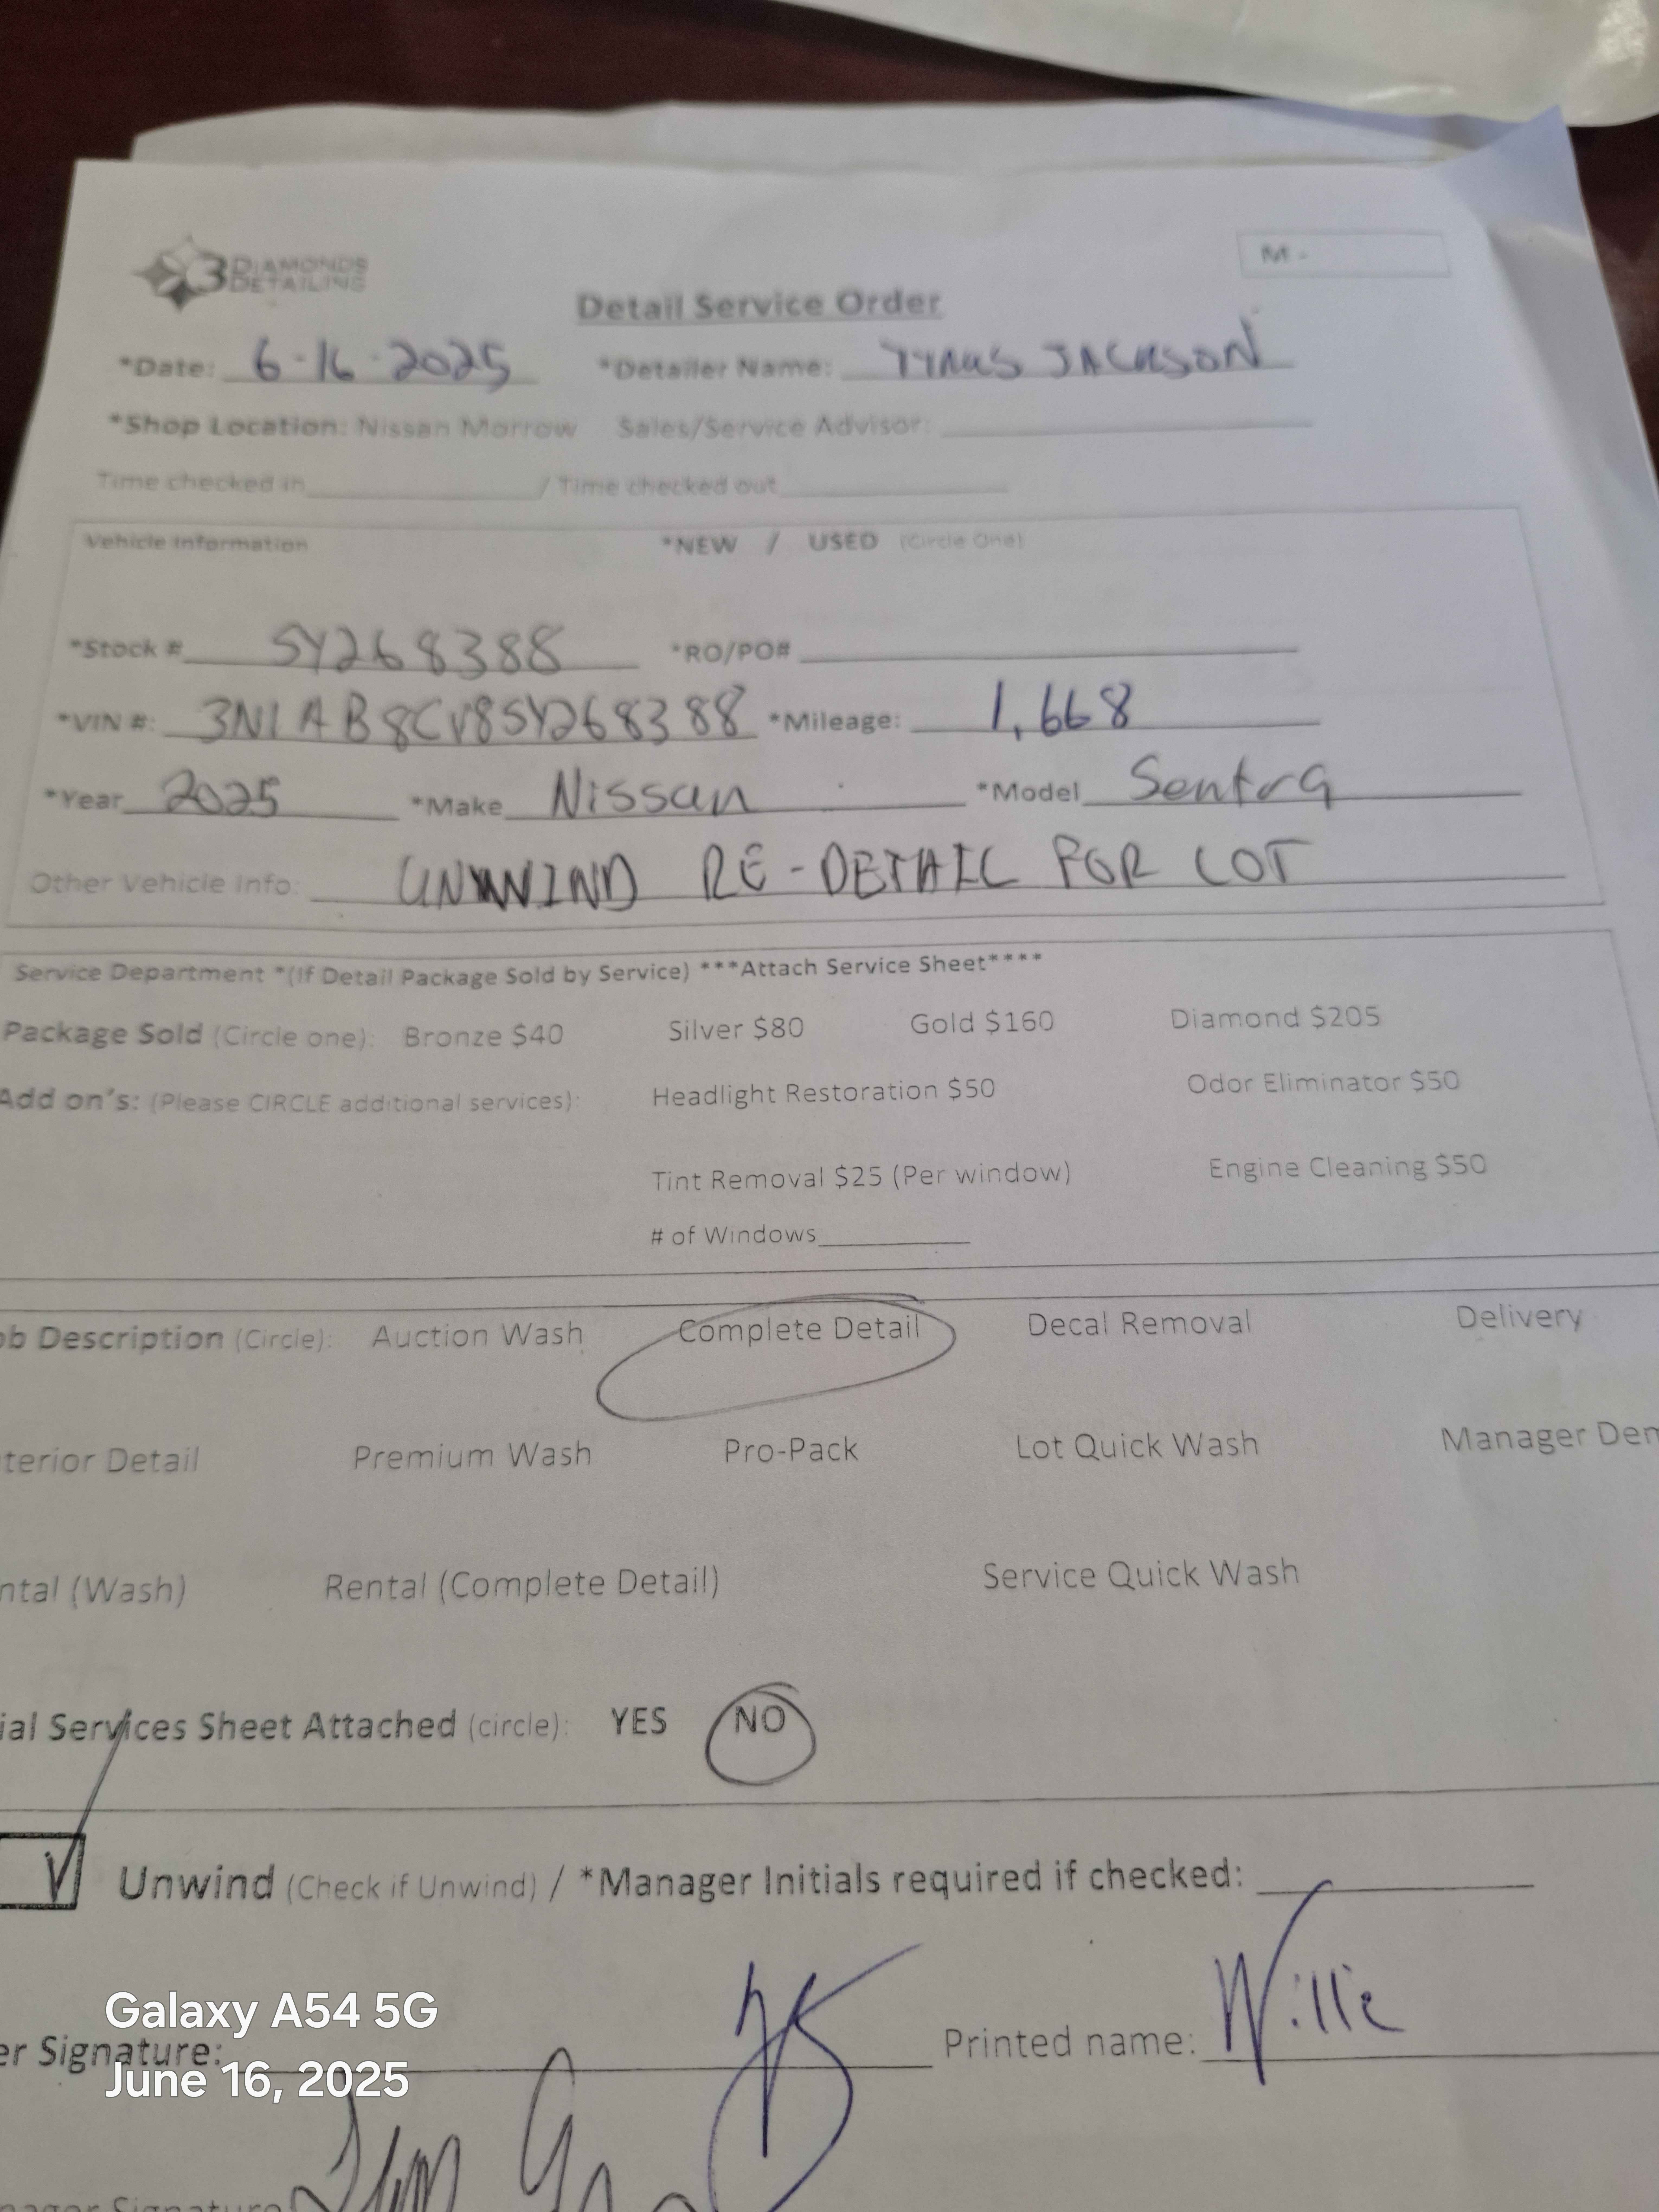 3 DIAMONDS DETAILING
M -
Detail Service Order
*Date: 6-16-2025 *Detailer Name: TYRUS JACKSON
*Shop Location: Nissan Morrow Sales/Service Advisor:
Time checked in / Time checked out
Vehicle Information *NEW / USED (Circle One)
*Stock # SY268388 *RO/PO#
*VIN #: 3N1AB8CV8SY268388 *Mileage: 1,668
*Year 2025 *Make Nissan *Model Sentra
Other Vehicle Info: UNWIND RE-DETAIL FOR LOT
Service Department *(If Detail Package Sold by Service) ***Attach Service Sheet****
Package Sold (Circle one): Bronze $40 Silver $80 Gold $160 Diamond $205
Add on's: (Please CIRCLE additional services): Headlight Restoration $50 Odor Eliminator $50
Tint Removal $25 (Per window) Engine Cleaning $50
# of Windows
ob Description (Circle): Auction Wash Complete Detail Decal Removal Delivery
terior Detail Premium Wash Pro-Pack Lot Quick Wash Manager Dem
ntal (Wash) Rental (Complete Detail) Service Quick Wash
ial Services Sheet Attached (circle): YES NO
Unwind (Check if Unwind) / *Manager Initials required if checked:
er Signature: Printed name: Willie
Galaxy A54 5G
June 16, 2025
nager Signature